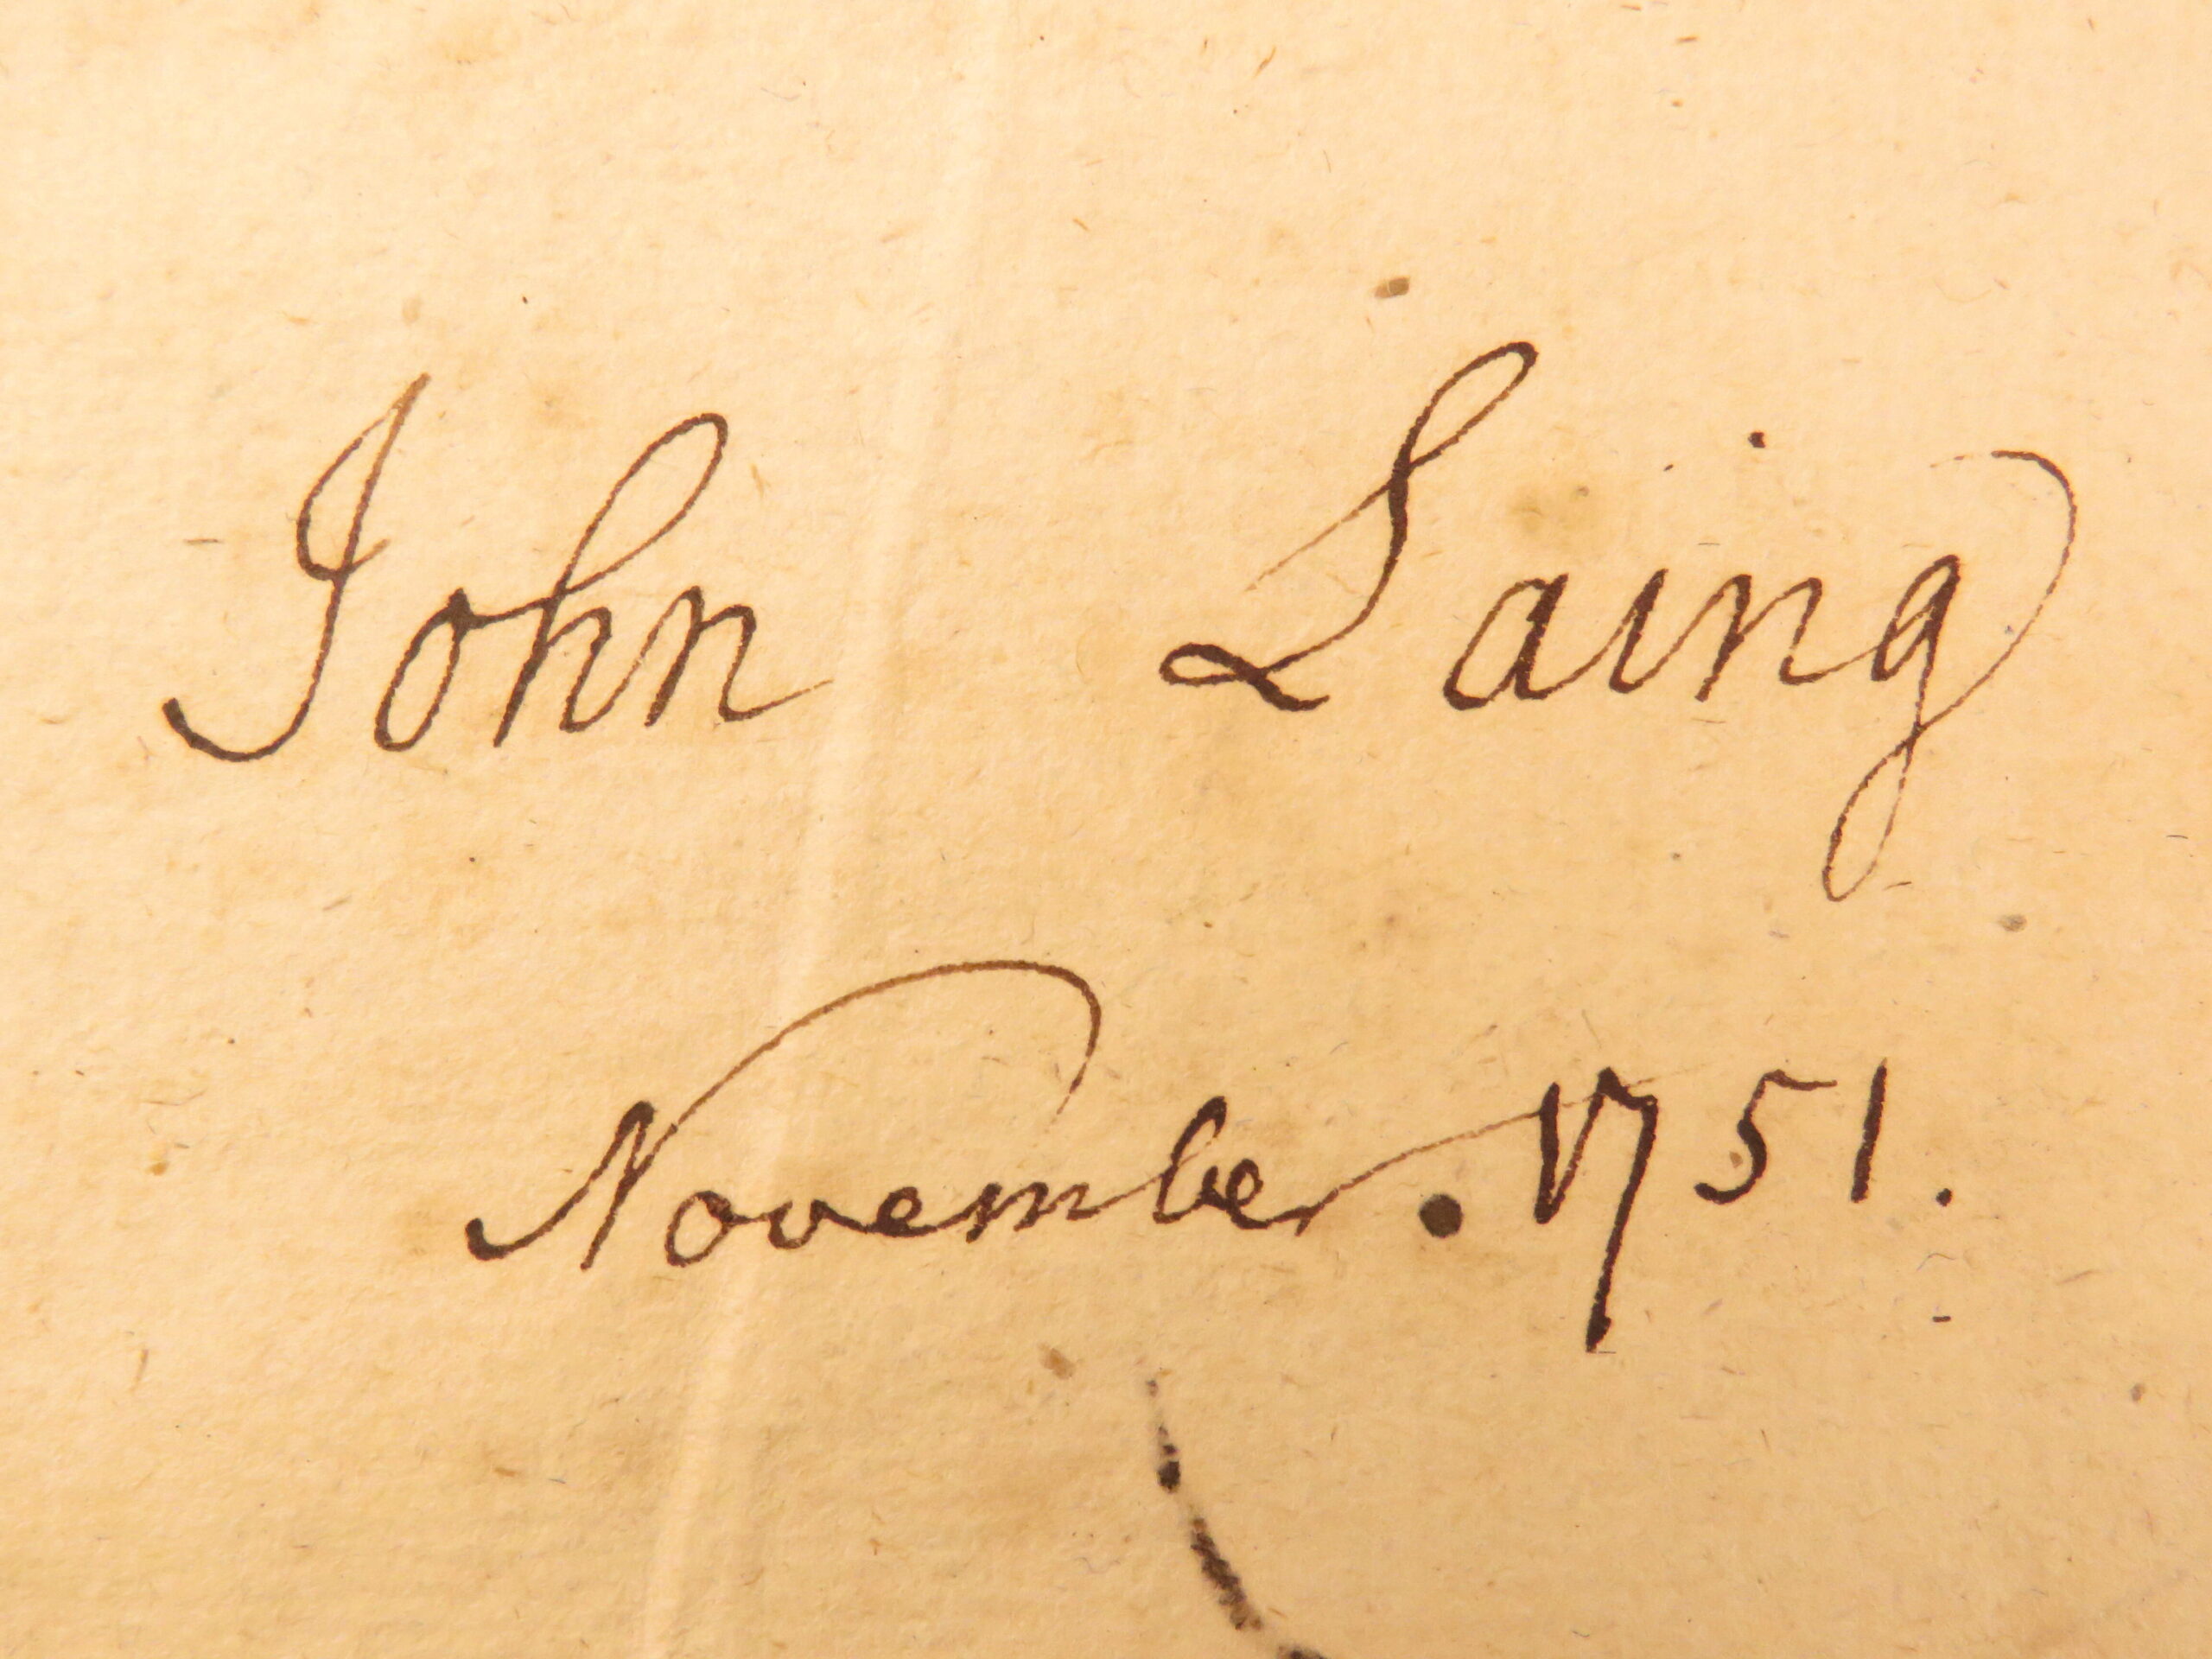 John Laing
November. 1751.